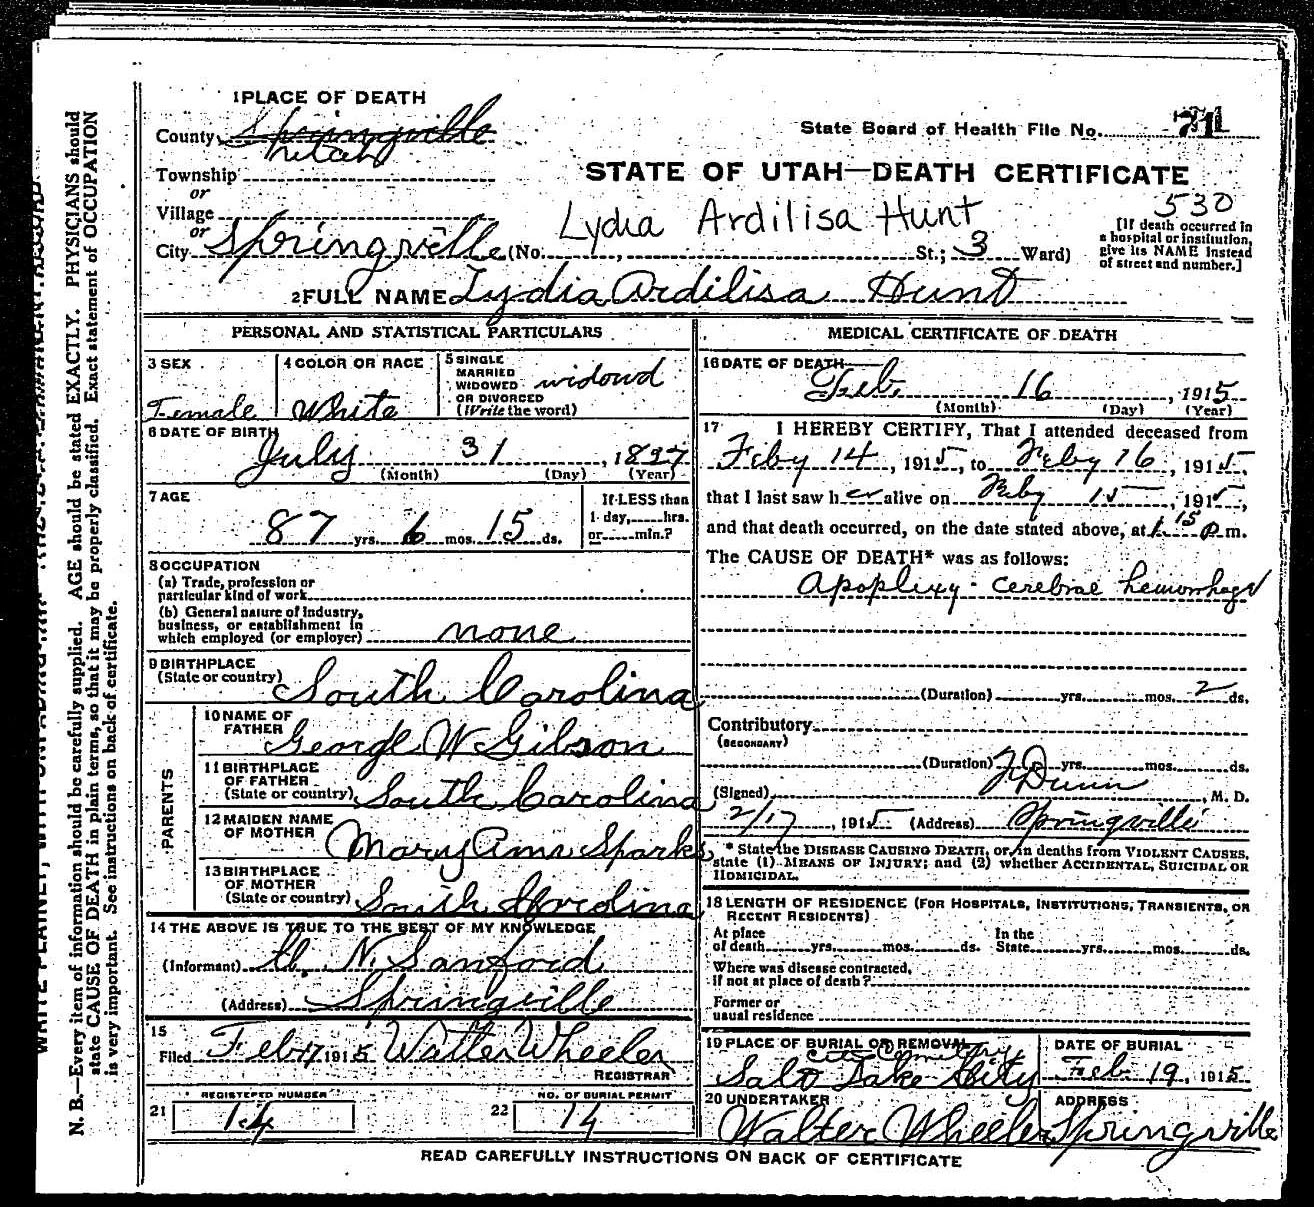 1 PLACE OF DEATH
County Springville
Utah
State Board of Health File No. 71
Township
or
Village
or
City Springville (No. , St.; 3 Ward)
STATE OF UTAH—DEATH CERTIFICATE
530
Lydia Ardilisa Hunt
[If death occurred in
a hospital or institution,
give its NAME instead
of street and number.]
2 FULL NAME Lydia Ardilisa Hunt
PERSONAL AND STATISTICAL PARTICULARS
3 SEX
Female
4 COLOR OR RACE
White
5 SINGLE
MARRIED
WIDOWED
OR DIVORCED
(Write the word)
widowd
6 DATE OF BIRTH
July 31, 1827
(Month) (Day) (Year)
7 AGE
87 yrs. 6 mos. 15 ds.
If LESS than
1 day, hrs.
or min.?
8 OCCUPATION
(a) Trade, profession or
particular kind of work
(b) General nature of industry,
business, or establishment in
which employed (or employer) none
9 BIRTHPLACE
(State or country) South Carolina
PARENTS
10 NAME OF
FATHER George W Gibson
11 BIRTHPLACE
OF FATHER
(State or country) South Carolina
12 MAIDEN NAME
OF MOTHER Mary Ann Sparks
13 BIRTHPLACE
OF MOTHER
(State or country) South Carolina
14 THE ABOVE IS TRUE TO THE BEST OF MY KNOWLEDGE
(Informant) N. Sanford
(Address) Springville
15
Filed Feb 17 1915 Walter Wheeler
REGISTRAR
21 REGISTERED NUMBER
14
22 NO. OF BURIAL PERMIT
14
MEDICAL CERTIFICATE OF DEATH
16 DATE OF DEATH
Feb. 16, 1915
(Month) (Day) (Year)
17 I HEREBY CERTIFY, That I attended deceased from
Feby 14, 1915, to Feby 16, 1915,
that I last saw her alive on Feby 15, 1915,
and that death occurred, on the date stated above, at 1 15 P.m.
The CAUSE OF DEATH* was as follows:
Apoplexy - cerebral hemorrhage
(Duration) yrs. mos. 2 ds.
Contributory
(SECONDARY)
(Duration) yrs. mos. ds.
(Signed) Dunn, M. D.
2/17, 1915 (Address) Springville
* State the DISEASE CAUSING DEATH, or in deaths from VIOLENT CAUSES,
state (1) MEANS OF INJURY; and (2) whether ACCIDENTAL, SUICIDAL OR
HOMICIDAL.
18 LENGTH OF RESIDENCE (FOR HOSPITALS, INSTITUTIONS, TRANSIENTS, OR
RECENT RESIDENTS)
At place In the
of death yrs. mos. ds. State yrs. mos. ds.
Where was disease contracted,
if not at place of death?
Former or
usual residence
19 PLACE OF BURIAL OR REMOVAL
City Cemetery
Salt Lake City
DATE OF BURIAL
Feb. 19, 1915
20 UNDERTAKER
Walter Wheeler
ADDRESS
Springville
READ CAREFULLY INSTRUCTIONS ON BACK OF CERTIFICATE
N. B.—Every item of information should be carefully supplied. AGE should be stated EXACTLY. PHYSICIANS should
state CAUSE OF DEATH in plain terms, so that it may be properly classified. Exact statement of OCCUPATION
is very important. See instructions on back of certificate.